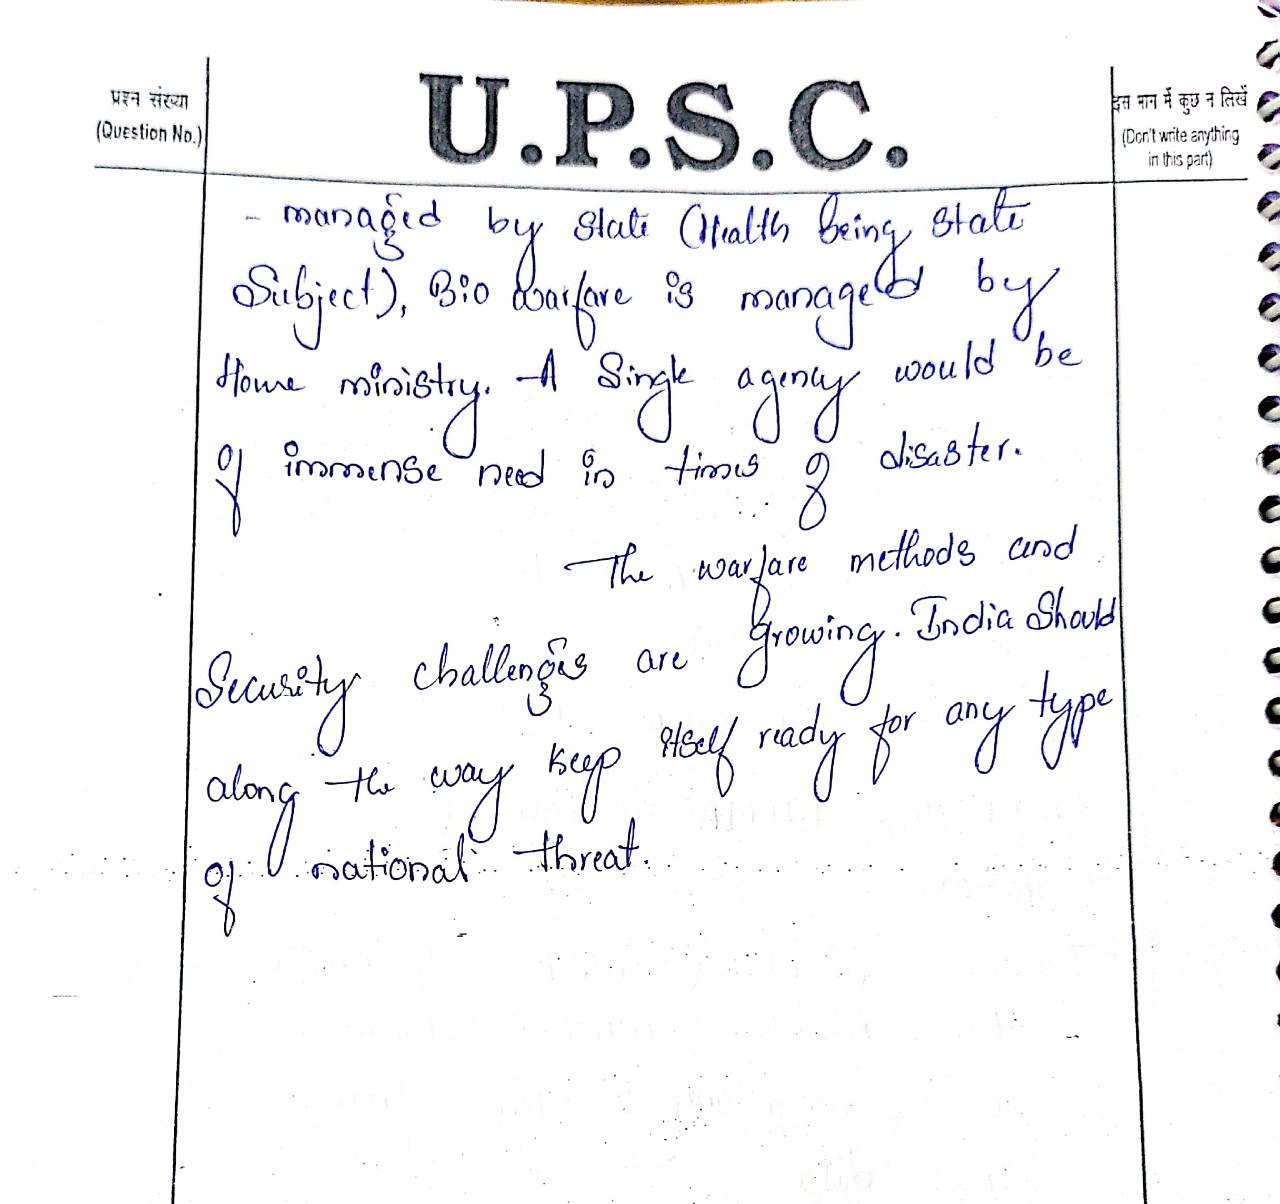 प्रश्न संख्या
(Question No.)
U.P.S.C.
इस भाग में कुछ न लिखें
(Don't write anything
in this part)
- managed by State (Health being State
Subject), Bio warfare is managed by
Home ministry. A Single agency would be
of immense need in times of disaster.
The warfare methods and
Security challenges are growing. India Should
along the way keep itself ready for any type
of national threat.